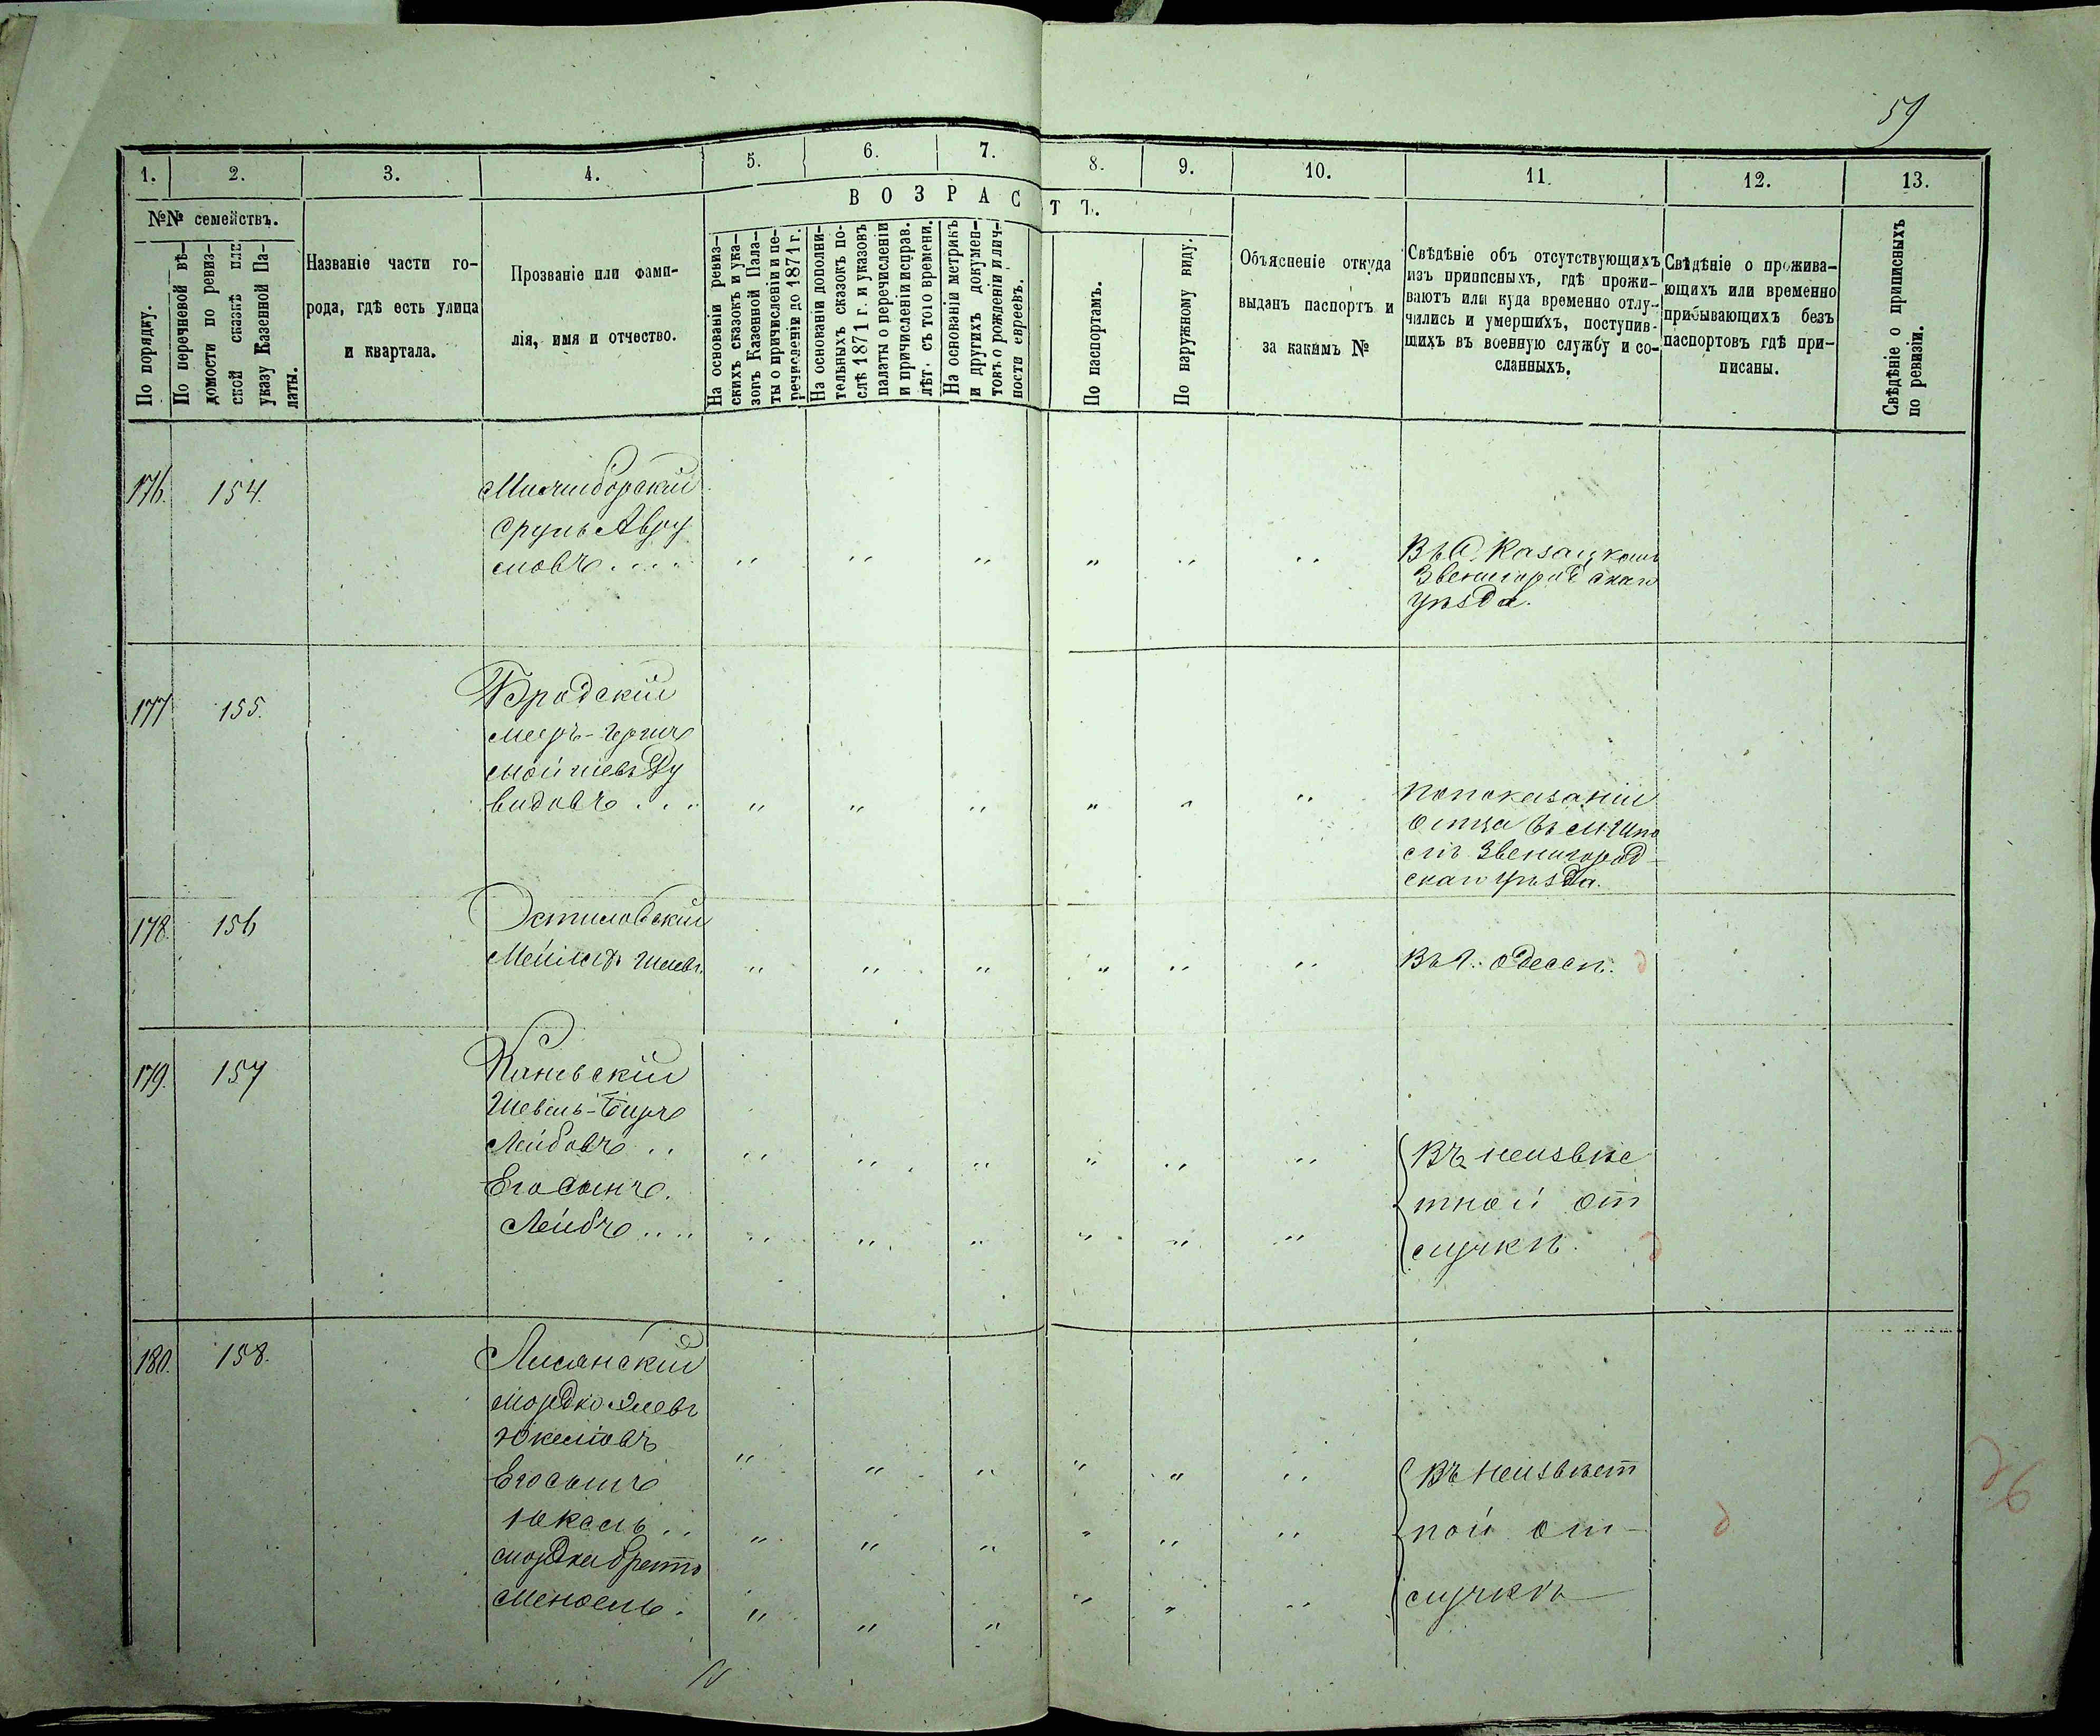 59
1. 2. 3. 4. 5. 6. 7. 8. 9. 10. 11. 12. 13.
№№ семействъ.
По порядку.
По перечневой вѣ-
домости по ревиз-
ской сказкѣ или
указу Казенной Па-
латы.
Названіе части го-
рода, гдѣ есть улица
и квартала.
Прозваніе или фами-
лія, имя и отчество.
ВОЗРАСТЪ.
На основаніи ревиз-
скихъ сказокъ и ука-
зовъ Казенной Пала-
ты о причисленіи и пе-
речисленіи до 1871 г.
На основаніи дополни-
тельныхъ сказокъ по-
слѣ 1871 г. и указовъ
палаты о перечисленіи
и причисленіи исправ.
лѣт. съ того времени.
На основаніи метрикъ
и другихъ докумен-
товъ о рожденіи и лич-
ности евреевъ.
По паспортамъ.
По наружному виду.
Объясненіе откуда
выданъ паспортъ и
за какимъ №
Свѣдѣніе объ отсутствующихъ
изъ приписныхъ, гдѣ прожи-
ваютъ или куда временно отлу-
чились и умершихъ, поступив-
шихъ въ военную службу и со-
сланныхъ.
Свѣдѣніе о прожива-
ющихъ или временно
прибывающихъ безъ
паспортовъ гдѣ при-
писаны.
Свѣдѣніе о приписныхъ
по ревизіи.
176. 154.
Срулъ Авру
мовъ .... " " " " " "
Въ С. Казацкомъ
Звенигородскаго
уѣзда.
177 155.
Бродскій
Мееръ-
Мойшевъ Ду
видовъ ... " " " " " "
По показанію
отца въ М. Шпо
лѣ Звенигород-
скаго уѣзда.
178. 156
" " " " " "
Въ г. Одессѣ. д
179. 157
Каневскій
Шевель-Беръ
Лейбовъ .. " " " " " "
Его Сынъ
Лейбъ .... " " " " " "
Въ неизвѣс
тной от
лучкѣ. д
180. 158.
Лисянскій
Мордко
Юкелювъ " " " " " "
Его сынъ
Юкель .. " " " " " "
Мордки братъ
Мендель. " " " " " "
Въ неизвѣст
ной от-
лучкѣ
д